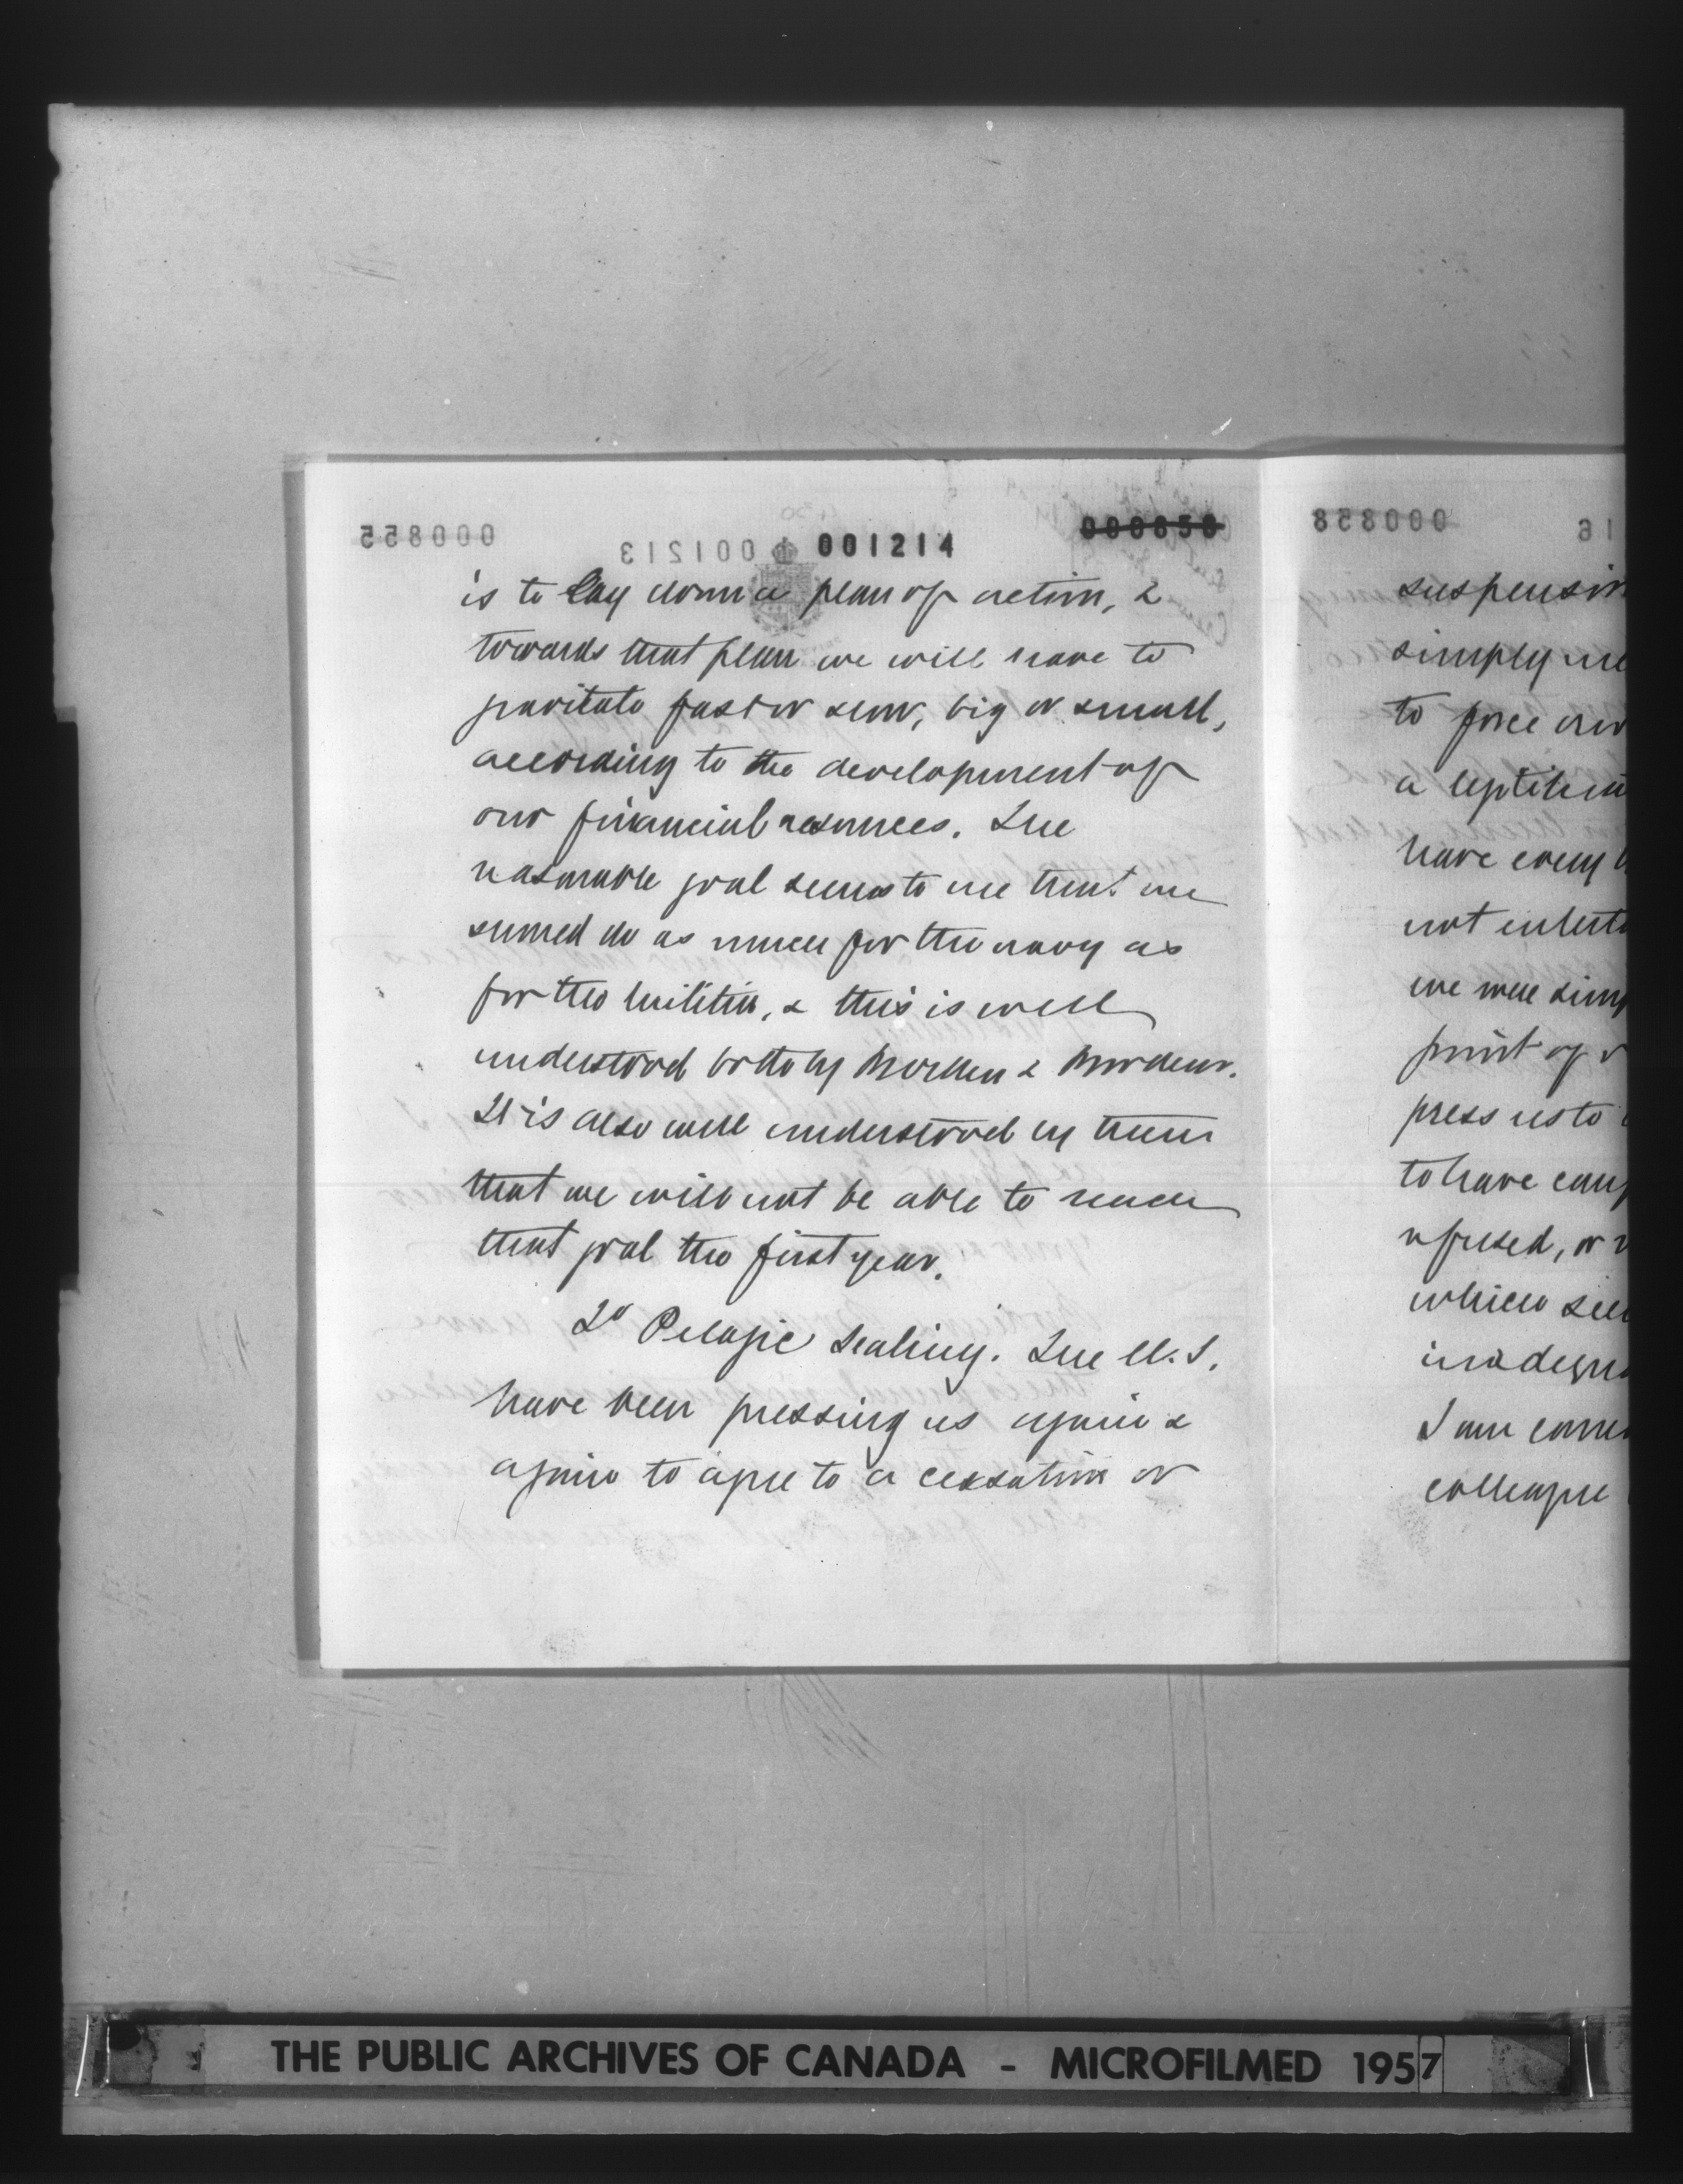 000855
001213 001214
000856
is to lay down a plan of action, &
towards that plan we will have to
gravitate fast or slow, big or small,
according to the development of
our financial resources. The
reasonable goal seems to me that we
should do as much for the navy as
for the militia, & this is well
understood both by Brodeur & Borden.
It is also well understood by them
that we will not be able to reach
that goal the first year.
2° Pelagic Sealing. The U.S.
have been pressing us again &
again to agree to a cessation or
000858
suspension
simply me
to force our
a legitima
have every
not enterta
we were simp
point of v
press us to
to have
refused, or
which
I am
colleague
THE PUBLIC ARCHIVES OF CANADA - MICROFILMED 1957